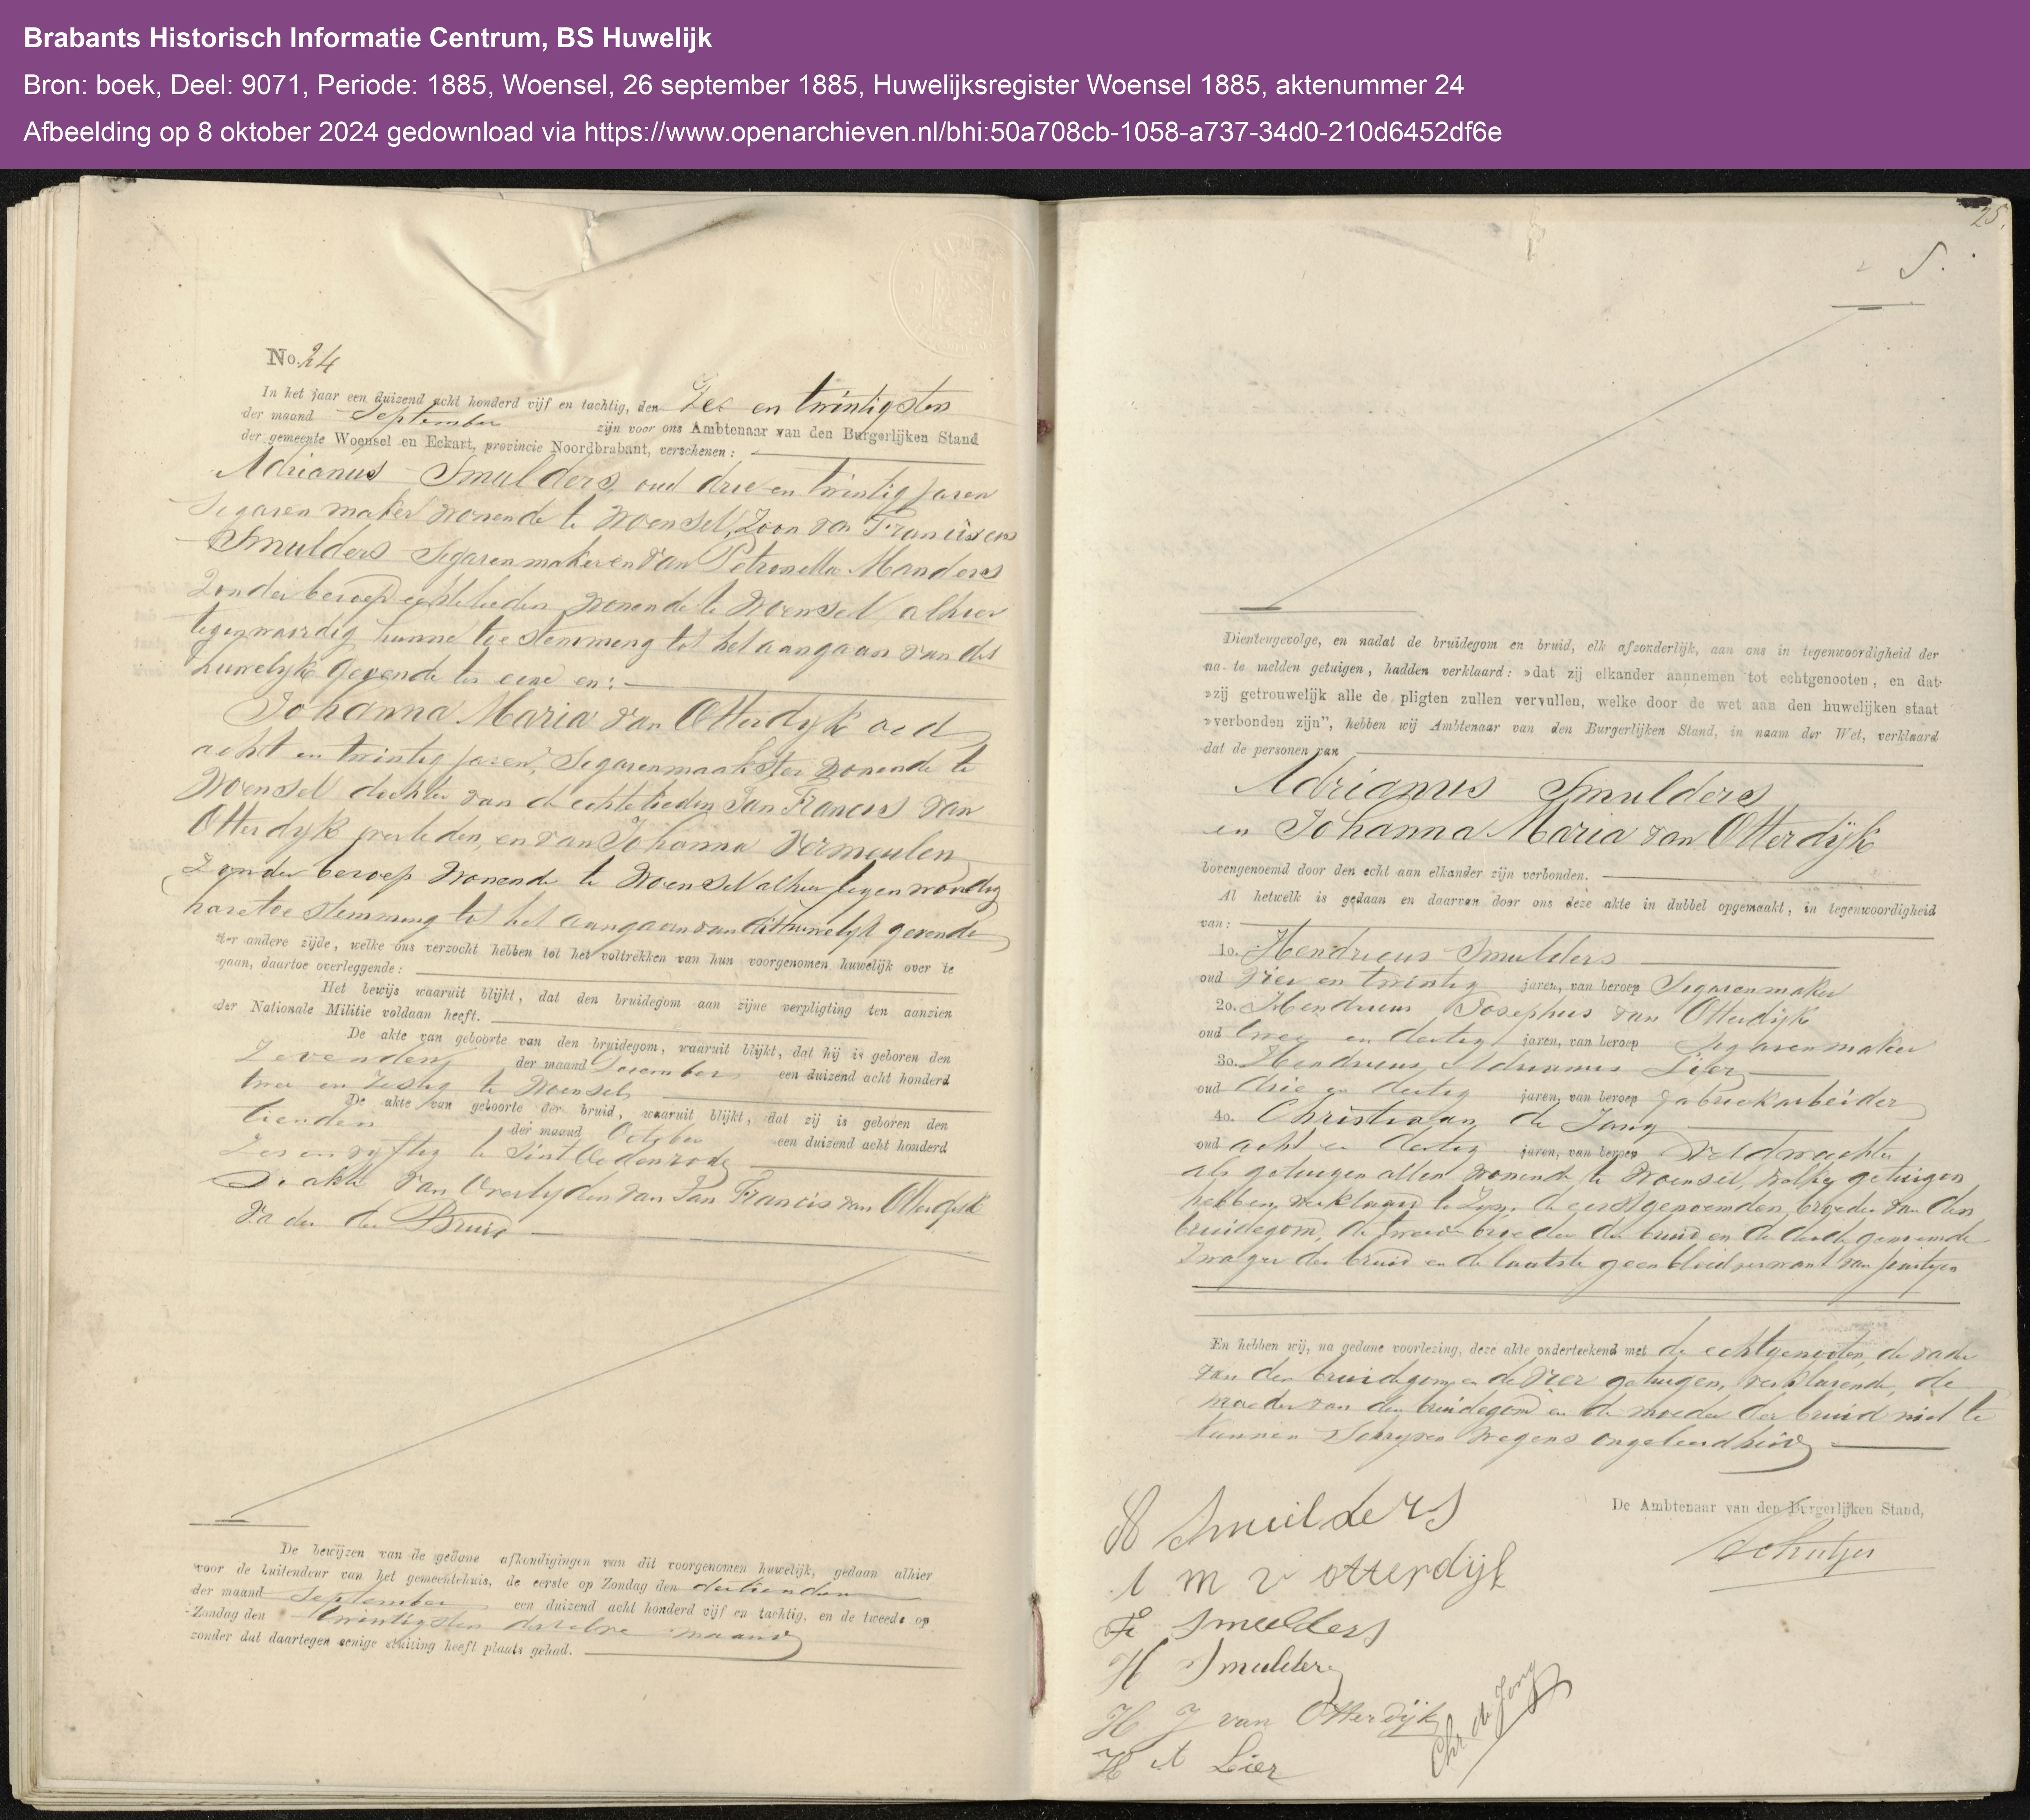 Brabants Historisch Informatie Centrum, BS Huwelijk
Bron: boek, Deel: 9071, Periode: 1885, Woensel, 26 september 1885, Huwelijksregister Woensel 1885, aktenummer 24
Afbeelding op 8 oktober 2024 gedownload via https://www.openarchieven.nl/bhi:50a708cb-1058-a737-34d0-210d6452df6e
No. 24
In het jaar een duizend acht honderd vijf en tachtig, den Zes en twintigsten
der maand September zijn voor ons Ambtenaar van den Burgerlijken Stand
der gemeente Woensel en Eckart, provincie Noordbrabant, verschenen:
Adrianus Smulders, oud drie en twintig jaren
Segarenmaker wonende te Woensel, Zoon van Franciscus
Smulders Segarenmaker en van Petronella Manders
zonder beroep echtelieden wonende te Woensel alhier
tegenwoordig hunne toestemming tot het aangaan van dit
huwelijk gevende ter eene en:
Johanna Maria van Otterdyk oud
acht en twintig jaren, Segarenmaakster wonende te
Woensel dochter van de echtelieden Jan Francis van
Otterdyk overleden, en van Johanna Vermeulen
zonder beroep wonende te Woensel alhier tegenwoordig
hare toestemming tot het aangaan van dit huwelyk gevende
ter andere zijde, welke ons verzocht hebben tot het voltrekken van hun voorgenomen huwelijk over te
gaan, daartoe overleggende:
Het bewijs waaruit blijkt, dat den bruidegom aan zijne verpligting ten aanzien
der Nationale Militie voldaan heeft.
De akte van geboorte van den bruidegom, waaruit blijkt, dat hij is geboren den
Zevenden der maand December een duizend acht honderd
twee en zestig te Woensel
De akte van geboorte der bruid, waaruit blijkt, dat zij is geboren den
tienden der maand October een duizend acht honderd
Zes en vyftig te Sint Oedenrode
De akte van Overlyden van Jan Francis van Otterdyk
vader der Bruid
De bewijzen van de gedane afkondigingen van dit voorgenomen huwelijk, gedaan alhier
voor de buitendeur van het gemeentehuis, de eerste op Zondag den dertienden
der maand September een duizend acht honderd vijf en tachtig, en de tweede op
Zondag den twintigsten derzelve maand
zonder dat daartegen eenige stuiting heeft plaats gehad.
25.
Dientengevolge, en nadat de bruidegom en bruid, elk afzonderlijk, aan ons in tegenwoordigheid der
na te melden getuigen, hadden verklaard: »dat zij elkander aannemen tot echtgenooten, en dat
»zij getrouwelijk alle de pligten zullen vervullen, welke door de wet aan den huwelijken staat
»verbonden zijn", hebben wij Ambtenaar van den Burgerlijken Stand, in naam der Wet, verklaard
dat de personen van
Adrianus Smulders
en Johanna Maria van Otterdijk
bovengenoemd door den echt aan elkander zijn verbonden.
Al hetwelk is gedaan en daarvan door ons deze akte in dubbel opgemaakt, in tegenwoordigheid
van:
1o. Hendricus Smulders
oud vier en twintig jaren, van beroep Segarenmaker
2o. Hendricus Josephus van Otterdijk
oud twee en dertig jaren, van beroep Segarenmaker
3o. Hendricus Adrianus Lier
oud drie en dertig jaren, van beroep fabriekarbeider
4o. Christiaan de Jong
oud acht en dertig jaren, van beroep Veldwachter
als getuigen allen wonende te Woensel, welke getuigen
hebben verklaard te zyn, de eerstgenoemden broeder van den
bruidegom, de tweede broeder der bruid en de derde genoemde
zwager der bruid en de laatste geen bloedverwant van partijen
En hebben wij, na gedane voorlezing, deze akte onderteekend met de echtgenooten, de vader
van den bruidegom en de vier getuigen, verklarende de
moeder van den bruidegom en de moeder der bruid niet te
kunnen Schryven wegens ongeleerdheid
De Ambtenaar van den Burgerlijken Stand,
Smulders
m v otterdijk
F Smulders
H Smulders
H J van Otterdijk
H A Lier
Chr. de Jong